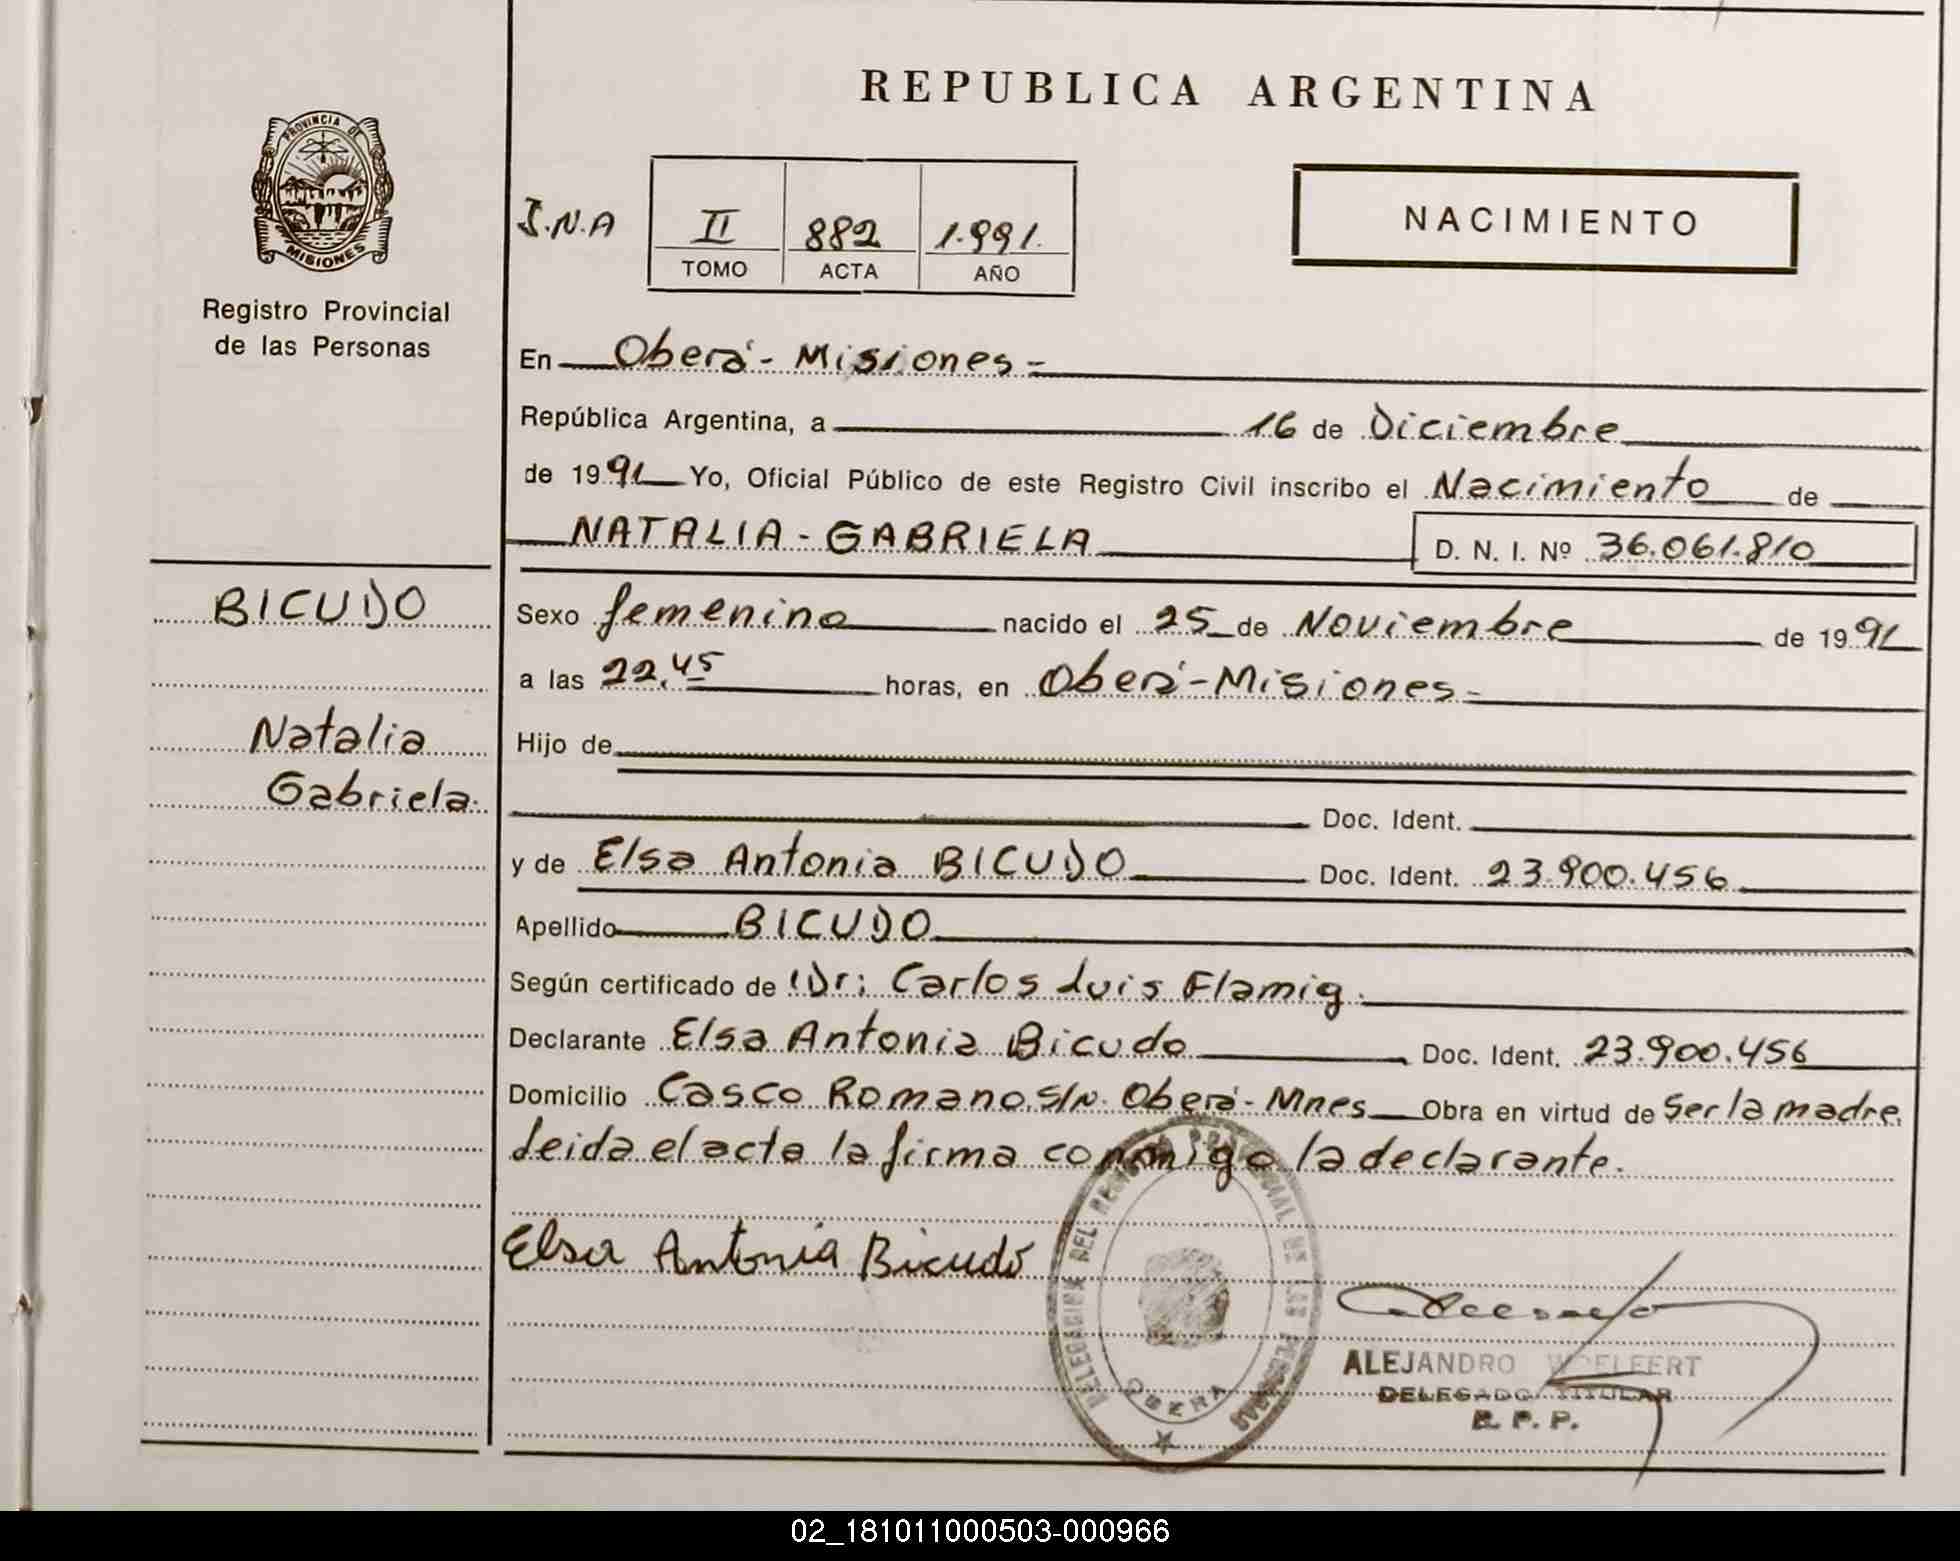 REPUBLICA ARGENTINA
PROVINCIA DE
MISIONES
Registro Provincial
de las Personas
I.N.A
II 882 1.991.
TOMO ACTA AÑO
NACIMIENTO
En Oberá - Misiones -
República Argentina, a 16 de Diciembre
de 1991 Yo, Oficial Público de este Registro Civil inscribo el Nacimiento de
NATALIA - GABRIELA D. N. I. Nº 36.061.810
BICUDO
Natalia
Gabriela.
Sexo femenino nacido el 25 de Noviembre de 1991
a las 22,45 horas, en Oberá - Misiones -
Hijo de
Doc. Ident.
y de Elsa Antonia BICUDO Doc. Ident. 23.900.456
Apellido BICUDO
Según certificado de Dr: Carlos Luis Flamig.
Declarante Elsa Antonia Bicudo Doc. Ident. 23.900.456
Domicilio Casco Romano s/n. Oberá - Mnes Obra en virtud de Ser la madre.
Leida el acta la firma conmigo la declarante.
Elsa Antonia Bicudo
DELEGACION DEL REGISTRO PROVINCIAL DE LAS PERSONAS
OBERA
ALEJANDRO WOELFERT
DELEGADO TITULAR
R. P. P.
02_181011000503-000966